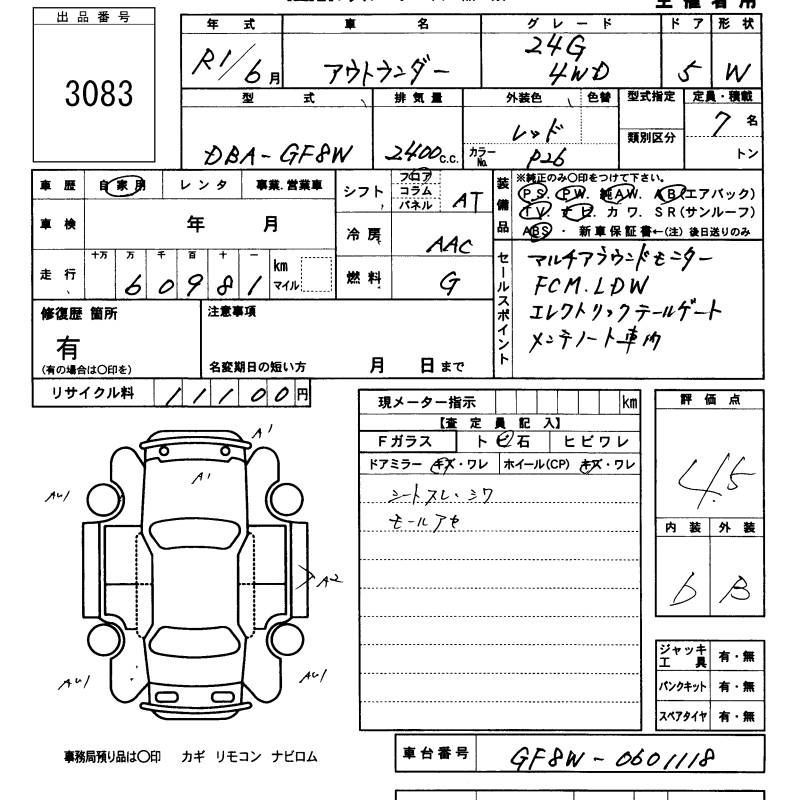 出品番号
3083
年式 車名 グレード ドア 形状
R1/6月 アウトランダー 24G 4WD 5 W
型式 排気量 外装色 色替 型式指定 定員・積載
DBA-GF8W 2400c.c. レッド 7名
カラーNo. P26 類別区分 トン
車歴 自家用 レンタ 事業.営業車
車検 年 月
走行 十万 万 千 百 十 一
60981 km マイル
シフト フロア コラム パネル AT
冷房 AAC
燃料 G
装備品 ※純正のみ〇印をつけて下さい。
PS. PW. 純AW. AB(エアバック)
TV. ナビ. カワ. SR(サンルーフ)
ABS・ 新車保証書←(注) 後日送りのみ
セールスポイント
マルチアラウンドモニター
FCM.LDW
エレクトリックテールゲート
メンテノート車内
修復歴 箇所
有
(有の場合は〇印を)
注意事項
名変期日の短い方 月 日まで
リサイクル料 11100円
現メーター指示 km
【査定員記入】
Fガラス トビ石 ヒビワレ
ドアミラー キズ・ワレ ホイール(CP) キズ・ワレ
シートスレ・シワ
モールアセ
評価点
4.5
内装 外装
b B
A1
A1
AU1
A2
AU1
AU1
ジャッキ工具 有・無
パンクキット 有・無
スペアタイヤ 有・無
事務局預り品は〇印 カギ リモコン ナビロム
車台番号 GF8W-0601118